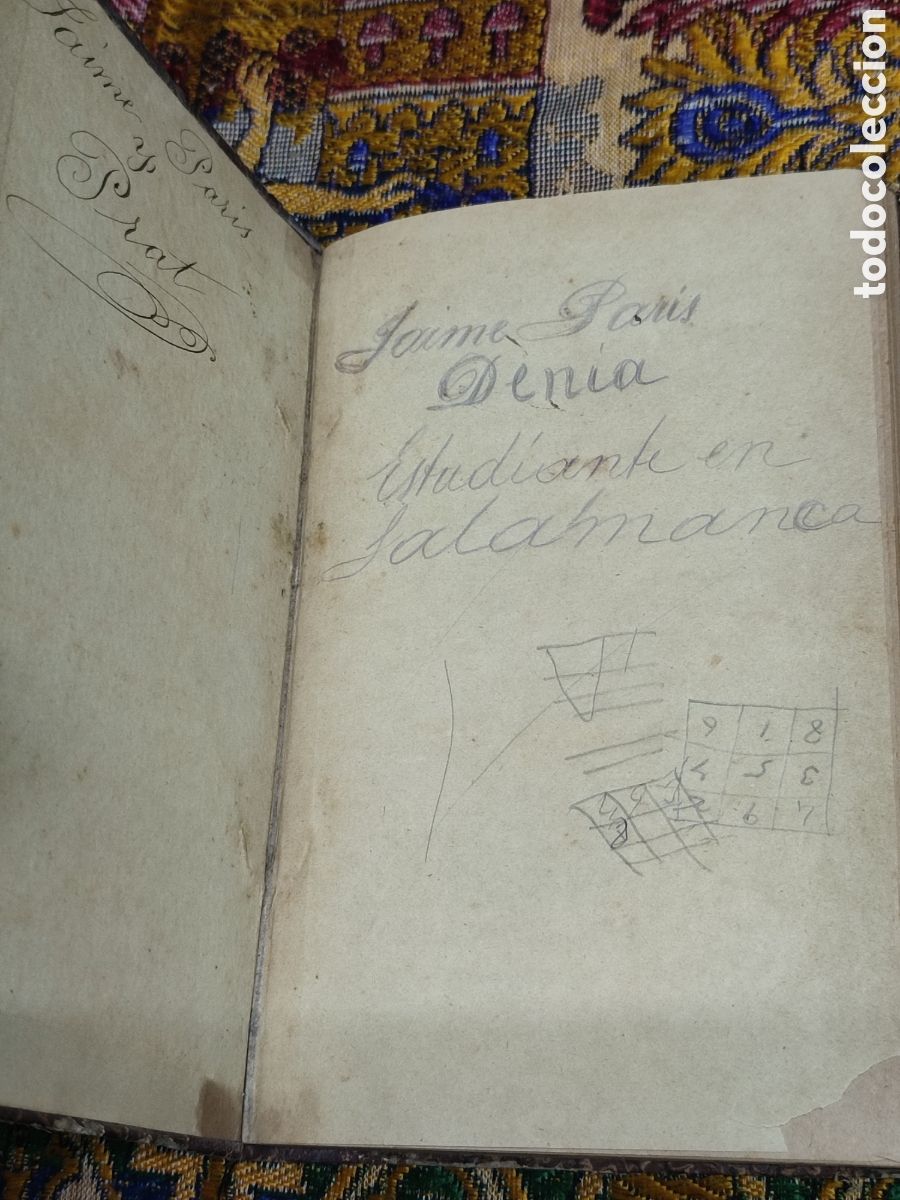 Jaime Paris
y
Prat
Jaime Paris
Denia
Estudiante en
Salamanca
6 1 8
7 5 3
2 9 4
todocoleccion